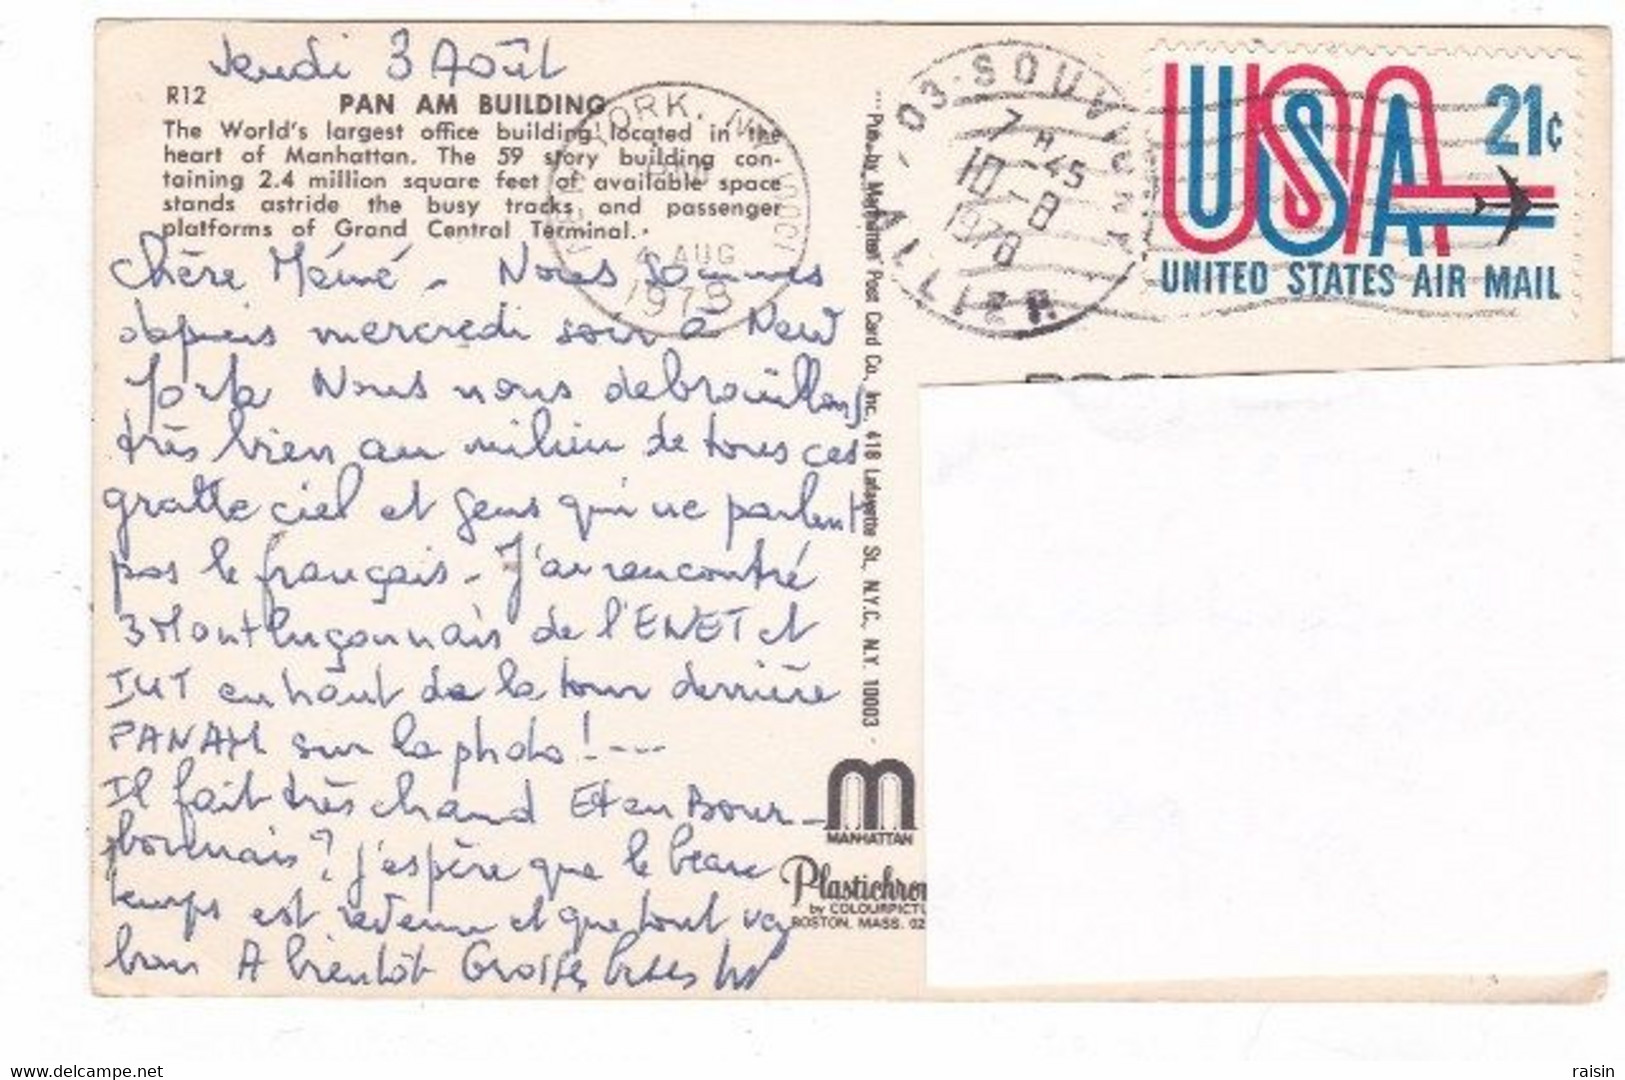 Jeudi 3 Août
R12 PAN AM BUILDING
The World's largest office building located in the
heart of Manhattan. The 59 story building con-
taining 2.4 million square feet of available space
stands astride the busy tracks and passenger
platforms of Grand Central Terminal.
Chère Mémé - Nous sommes
depuis mercredi soir à New
York Nous nous debrouillons
très bien au milieu de tous ces
gratte ciel et gens qui ne parlent
pas le français - J'ai rencontré
3 Montluçonnais de l'ENET et
IUT en haut de la tour derrière
PANAM sur la photo! ---
Il fait très chaud Et en Bour-
bonnais? J'espère que le beau
temps est revenu et que tout va
bien A bientôt Grosses bises
YORK, N.Y.
4 AUG
1978
Pub. by Manhattan Post Card Co., Inc., 418 Lafayette St., N.Y.C., N.Y. 10003
MANHATTAN
Plastichrom
by COLOURPICTU
BOSTON, MASS. 02
03-SOUVIGNY
7 H 45
10-8
1978
ALLIER
USA 21c
UNITED STATES AIR MAIL
delcampe.net
raisin